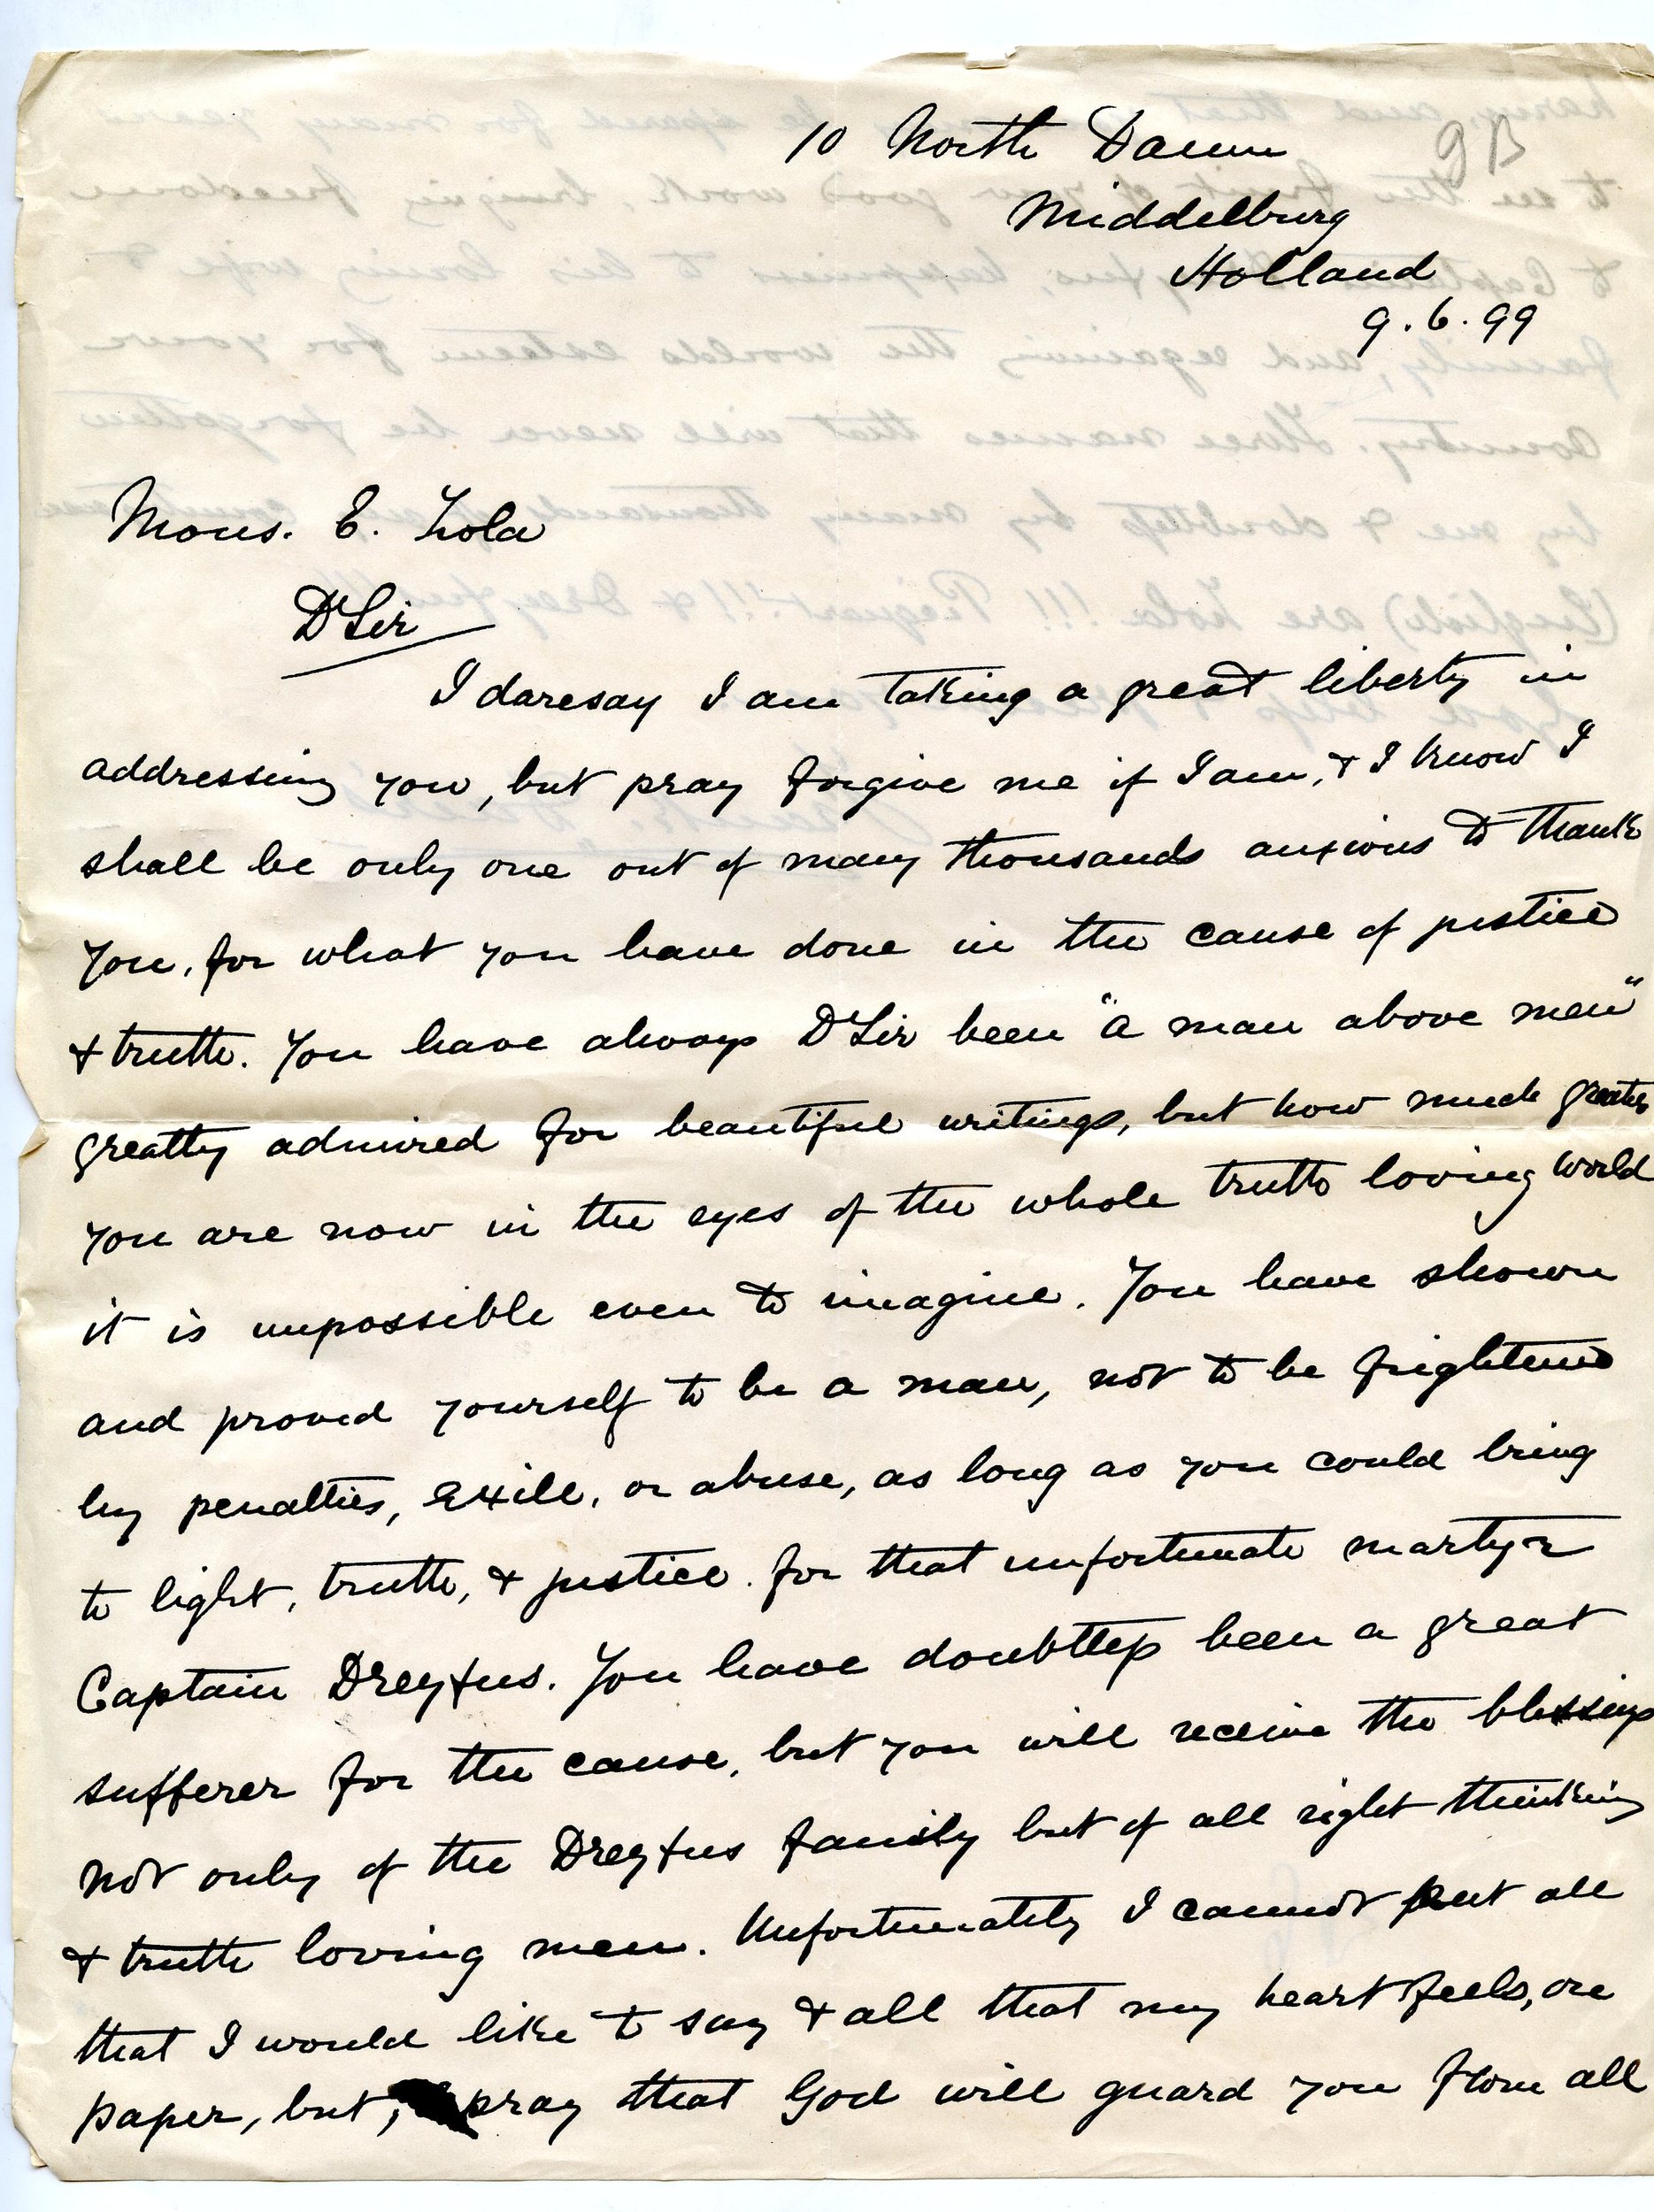 10 North Damm
9B
Middelburg
Holland
9.6.99
Mons. E. Zola
Dr Sir
I daresay I am taking a great liberty in
addressing you, but pray forgive me if I am, & I know I
shall be only one out of many thousands anxious to thank
you, for what you have done in the cause of justice
& truth. You have always Dr Sir been "a man above men"
greatly admired for beautiful writings, but how much greater
you are now in the eyes of the whole truth loving world
it is impossible even to imagine. You have shown
and proved yourself to be a man, not to be frightened
by penalties, exile, or abuse, as long as you could bring
to light, truth, & justice. for that unfortunate martyr
Captain Dreyfus. You have doubtless been a great
sufferer for the cause, but you will receive the blessings
not only of the Dreyfus family but of all right thinking
& truth loving men. Unfortunately I cannot put all
that I would like to say & all that my heart feels, on
paper, but, pray that God will guard you from all